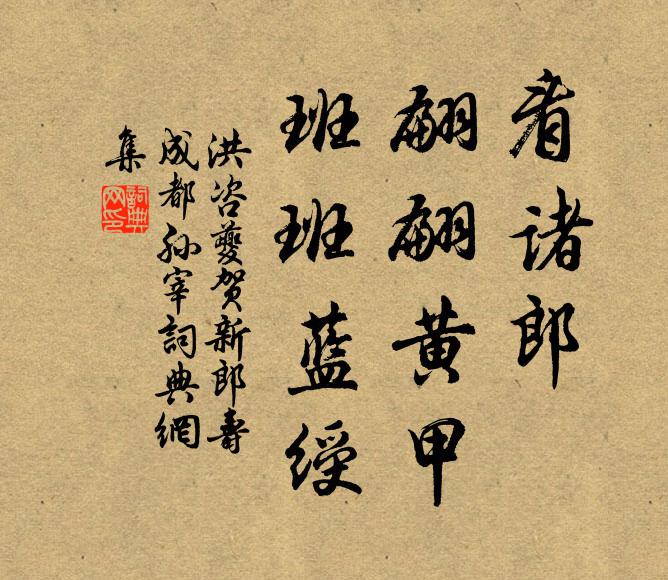 看诸郎
翩翩黄甲
班班蓝绶
洪咨夔贺新郎寿
成都孙宰词典網
集
詞典
网印